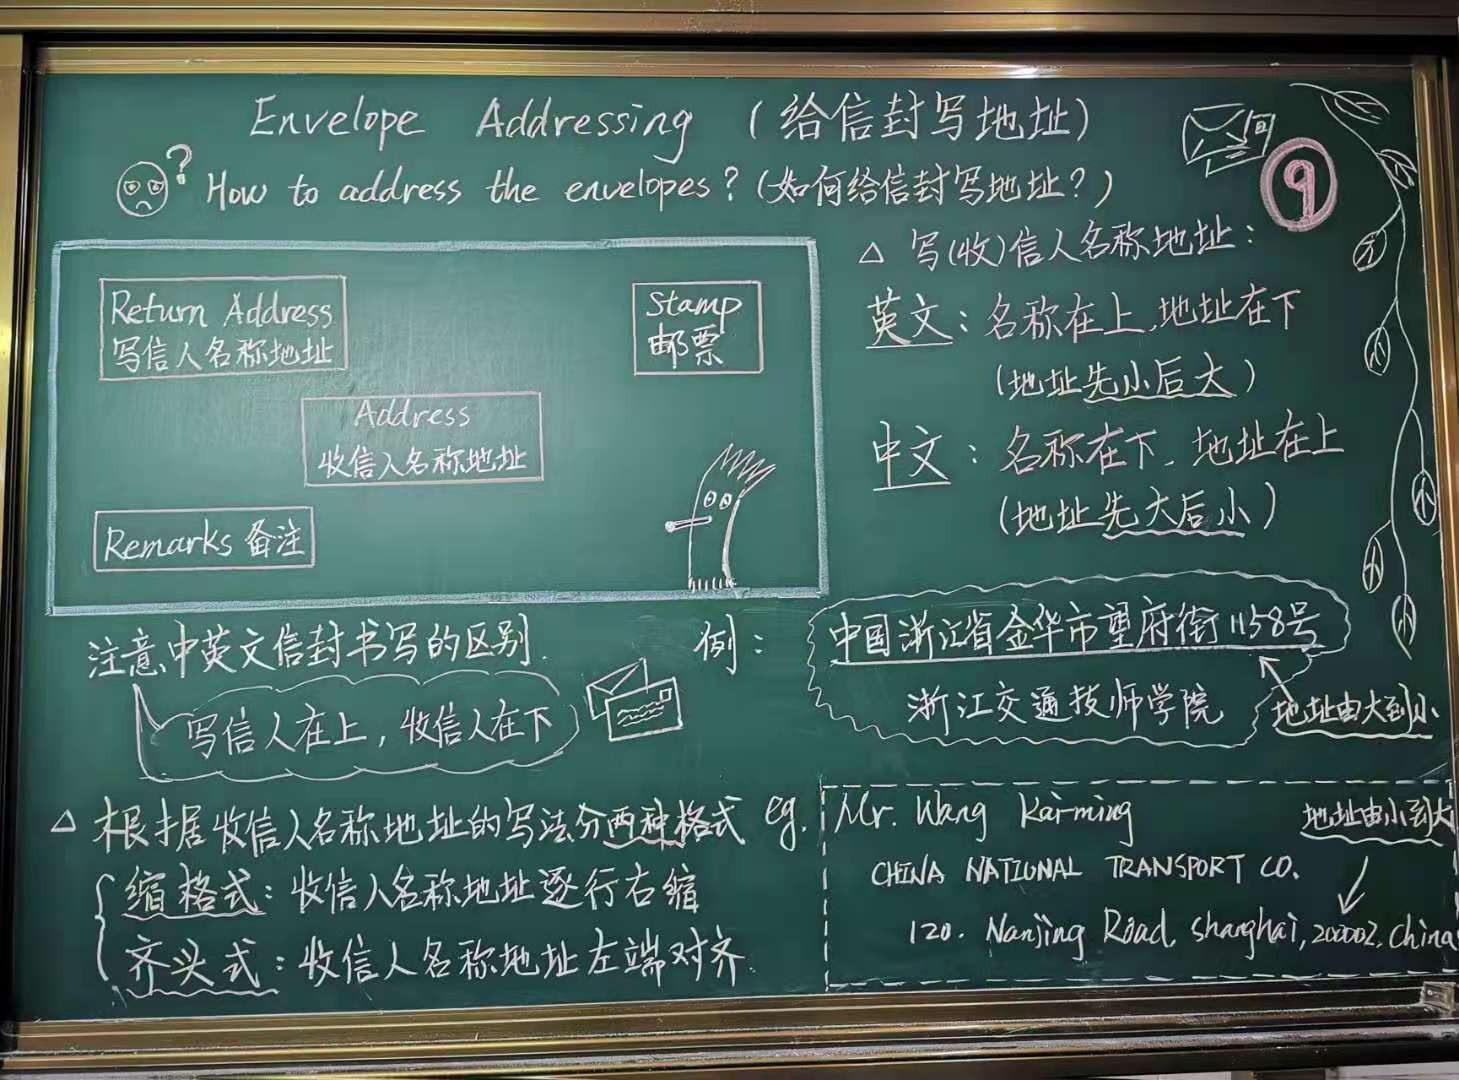 Envelope Addressing (给信封写地址)
? How to address the envelopes? (如何给信封写地址?)
9
Return Address
写信人名称地址
Stamp
邮票
Address
收信人名称地址
Remarks 备注
△ 写(收)信人名称地址:
英文: 名称在上,地址在下
(地址先小后大)
中文: 名称在下,地址在上
(地址先大后小)
注意中英文信封书写的区别.
写信人在上,收信人在下
例:
中国浙江省金华市望府街1158号
浙江交通技师学院
地址由大到小
△ 根据收信人名称地址的写法分两种格式
缩格式: 收信人名称地址逐行右缩
齐头式: 收信人名称地址左端对齐.
eg.
Mr. Wang Kai-ming
CHINA NATIONAL TRANSPORT CO.
120. Nanjing Road, shanghai, 200002, China
地址由小到大